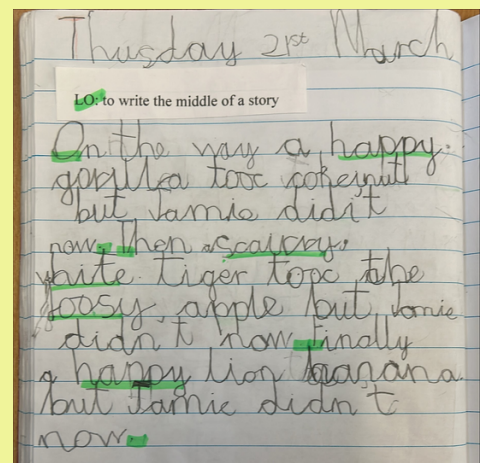 Thusday 21st March
LO: to write the middle of a story
On the way a happy.
gorilla tooc cokeynut
but Jamie didn't
now. Then a scaurry.
white tiger tooc the
joosy apple but Jamie
didn't now. finally
a happy lion banana.
but Jamie didn't
now.